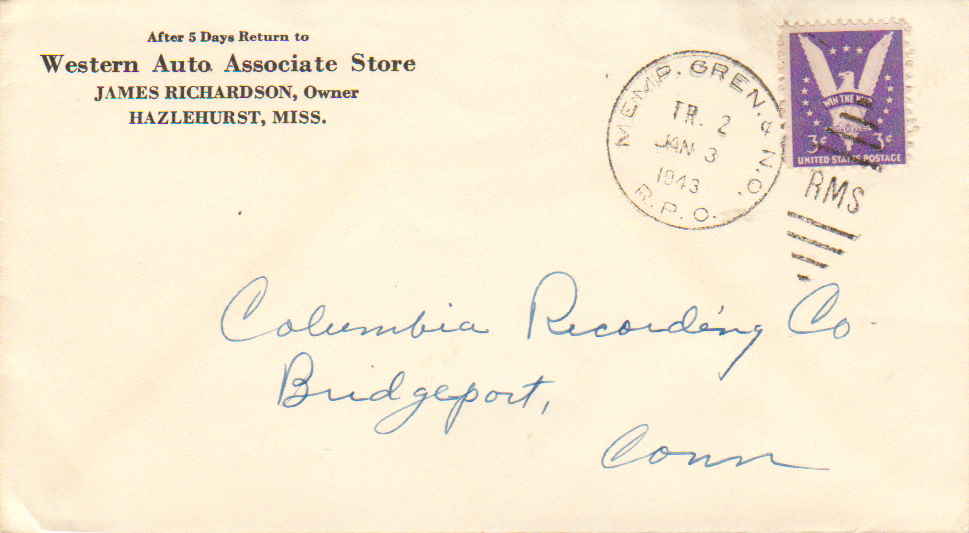 After 5 Days Return to
Western Auto Associate Store
JAMES RICHARDSON, Owner
HAZLEHURST, MISS.
MEMP. GREN. & N.O.
TR. 2
JAN 3
1943
R.P.O.
WIN THE
3¢ 3¢
UNITED STATES POSTAGE
RMS
Columbia Recording Co
Bridgeport,
Conn